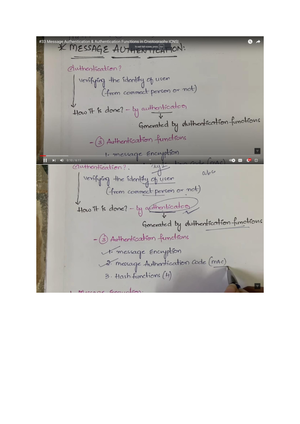 #32 Message Authentication & Authentication Functions in Cryptography |CNS|
* MESSAGE AUTHENTICATION:
Authentication?
Verifying the identity of user
(from correct person or not)
How it is done? - by authenticator
Generated by authentication functions
- (3) Authentication functions
1. message Encryption
Authentication?
Verifying the identity of user
(from correct person or not)
How it is done? - by authenticator
Generated by authentication functions
- (3) Authentication functions
1. message Encryption
2. message Authentication Code (MAC)
3. Hash functions (H)